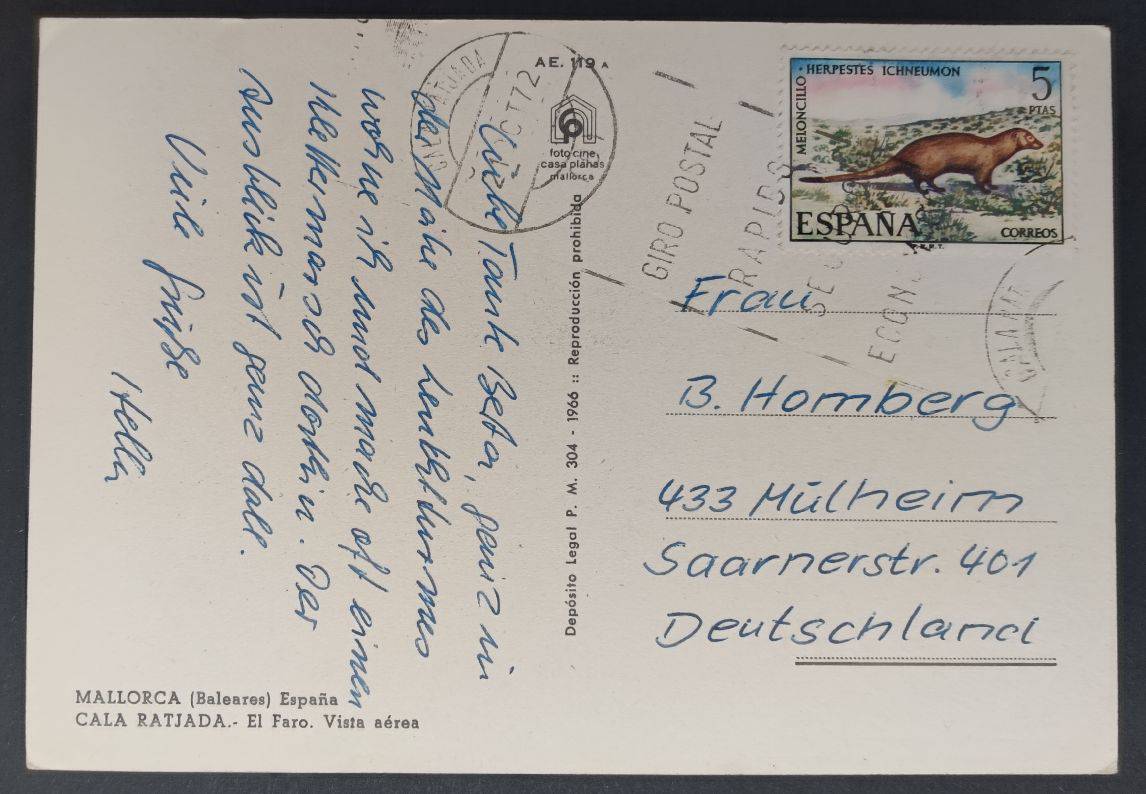 Liebe Tante Berta, ganz in
der Nähe des Leuchtturmes
wohne ich und mache oft einen
Klettermarsch dorthin. Der
Ausblick ist ganz doll.
Viele Grüße
Hella
MALLORCA (Baleares) España
CALA RATJADA.- El Faro. Vista aérea
AE. 119 A
foto cine
casa planas
mallorca
Depósito Legal P. M. 304 - 1966 :: Reproducción prohibida
CALA RATJADA
OCT 72
GIRO POSTAL
RAPIDO
HERPESTES ICHNEUMON
MELONCILLO
5
PTAS
ESPAÑA
CORREOS
F.N.M.T.
Frau
B. Homberg
433 Mülheim
Saarnerstr. 401
Deutschland